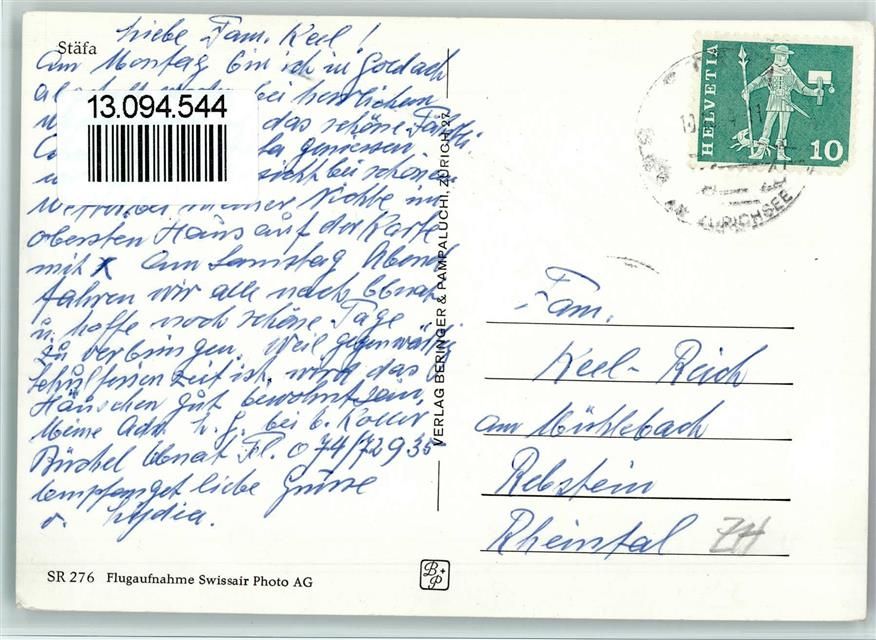 Stäfa
Liebe Fam. Keel!
Am Montag bin ich in Goldach
bei herrlichem
13.094.544
das schöne
geniessen
sicht bei schönem
Wetter bei meiner Nichte im
obersten Haus auf der Karte
mit X Am Samstag Abend
fahren wir alle nach Ebnat
u. hoffe noch schöne Tage
zu verbringen. Weil gegenwärtig
Schulferienzeit ist, wird das
Häuschen gut bewohnt sein.
Meine Adr. b. E. Koller
Büchel Ebnat Tl. 074/72935
Empfanget liebe Grüsse
v. Lydia.
SR 276 Flugaufnahme Swissair Photo AG
VERLAG BERINGER & PAMPALUCHI, ZÜRICH 27
B+P
HELVETIA
10
ZÜRICHSEE
Fam.
Keel-Reich
am Mühlebach
Rebstein
Rheintal ZH